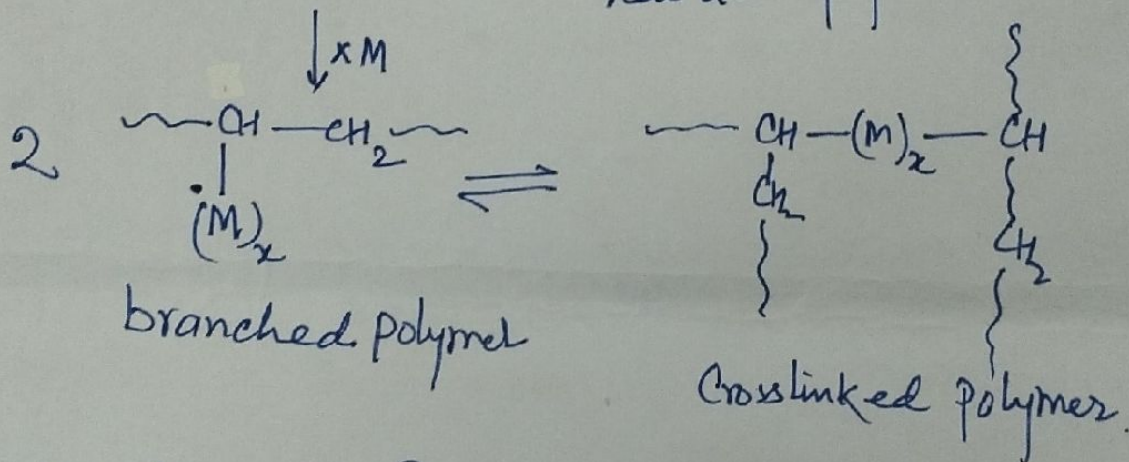 ↓ x M
2 ~CH—CH₂~ ⇌ ~CH—(M)ₓ—CH
.(M)ₓ CH₂ CH₂
branched polymer
Crosslinked polymer.